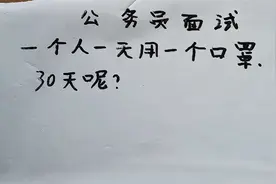 公务员面试
一个人一天用一个口罩.
30天呢?